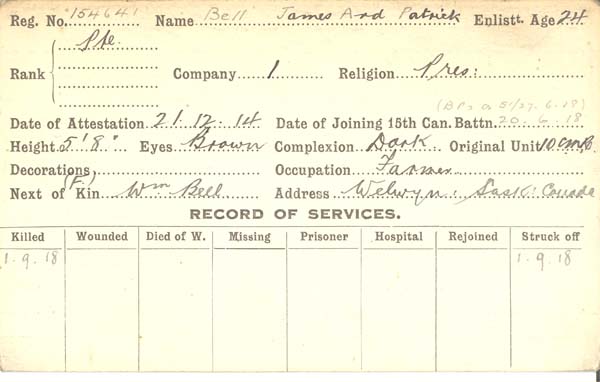 Reg. No. 154641 Name Bell James Ard Patrick Enlistt. Age 24
Rank Pte. Company 1 Religion Pres:
(B.Pz. o. 5/37. 6.18)
Date of Attestation 21. 12. 14 Date of Joining 15th Can. Battn. 20. 6. 18
Height 5' 8" Eyes Brown Complexion Dark Original Unit 10 CMR
Decorations Occupation Farmer
Next of Kin (F.) Wm Bell Address Welwyn: Sask: Canada
RECORD OF SERVICES.
Killed Wounded Died of W. Missing Prisoner Hospital Rejoined Struck off
1. 9. 18 1. 9. 18